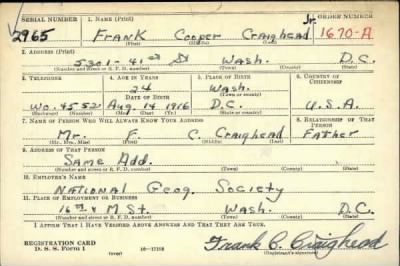 SERIAL NUMBER 1. NAME (Print) ORDER NUMBER
2965 FRANK Cooper Craighead Jr. 1670-A
(First) (Middle) (Last)
2. ADDRESS (Print)
5301-41st St Wash. D.C.
(Number and street or R. F. D. number) (Town) (County) (State)
3. TELEPHONE 4. AGE IN YEARS 5. PLACE OF BIRTH 6. COUNTRY OF CITIZENSHIP
24 Wash.
DATE OF BIRTH (Town or county)
Wo. 4552 Aug. 14 1916 D.C. U.S.A.
(Exchange) (Number) (Mo.) (Day) (Yr.) (State or country)
7. NAME OF PERSON WHO WILL ALWAYS KNOW YOUR ADDRESS 8. RELATIONSHIP OF THAT PERSON
Mr. F. C. Craighead Father
(Mr., Mrs., Miss) (First) (Middle) (Last)
9. ADDRESS OF THAT PERSON
Same Add.
(Number and street or R. F. D. number) (Town) (County) (State)
10. EMPLOYER'S NAME
NATIONAL Geog. Society
11. PLACE OF EMPLOYMENT OR BUSINESS
16th & M St. Wash. D.C.
(Number and street or R. F. D. number) (Town) (County) (State)
I AFFIRM THAT I HAVE VERIFIED ABOVE ANSWERS AND THAT THEY ARE TRUE.
REGISTRATION CARD
D. S. S. Form 1 (over) 16-17105 Frank C. Craighead
(Registrant's signature)